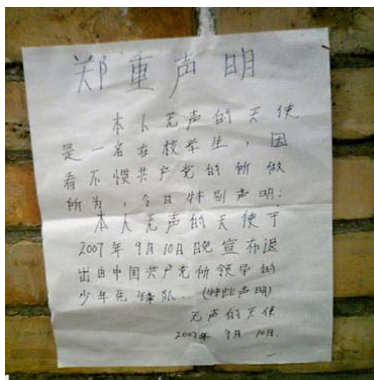 郑重声明
本人无声的天使
是一名在校学生，因
看不惯共产党的所做
所为，今日特别声明：
本人无声的天使于
2007年9月10日晚宣布退
出由中国共产党所领导的
少年先锋队。（特此声明）
无声的天使
2007年9月10日.